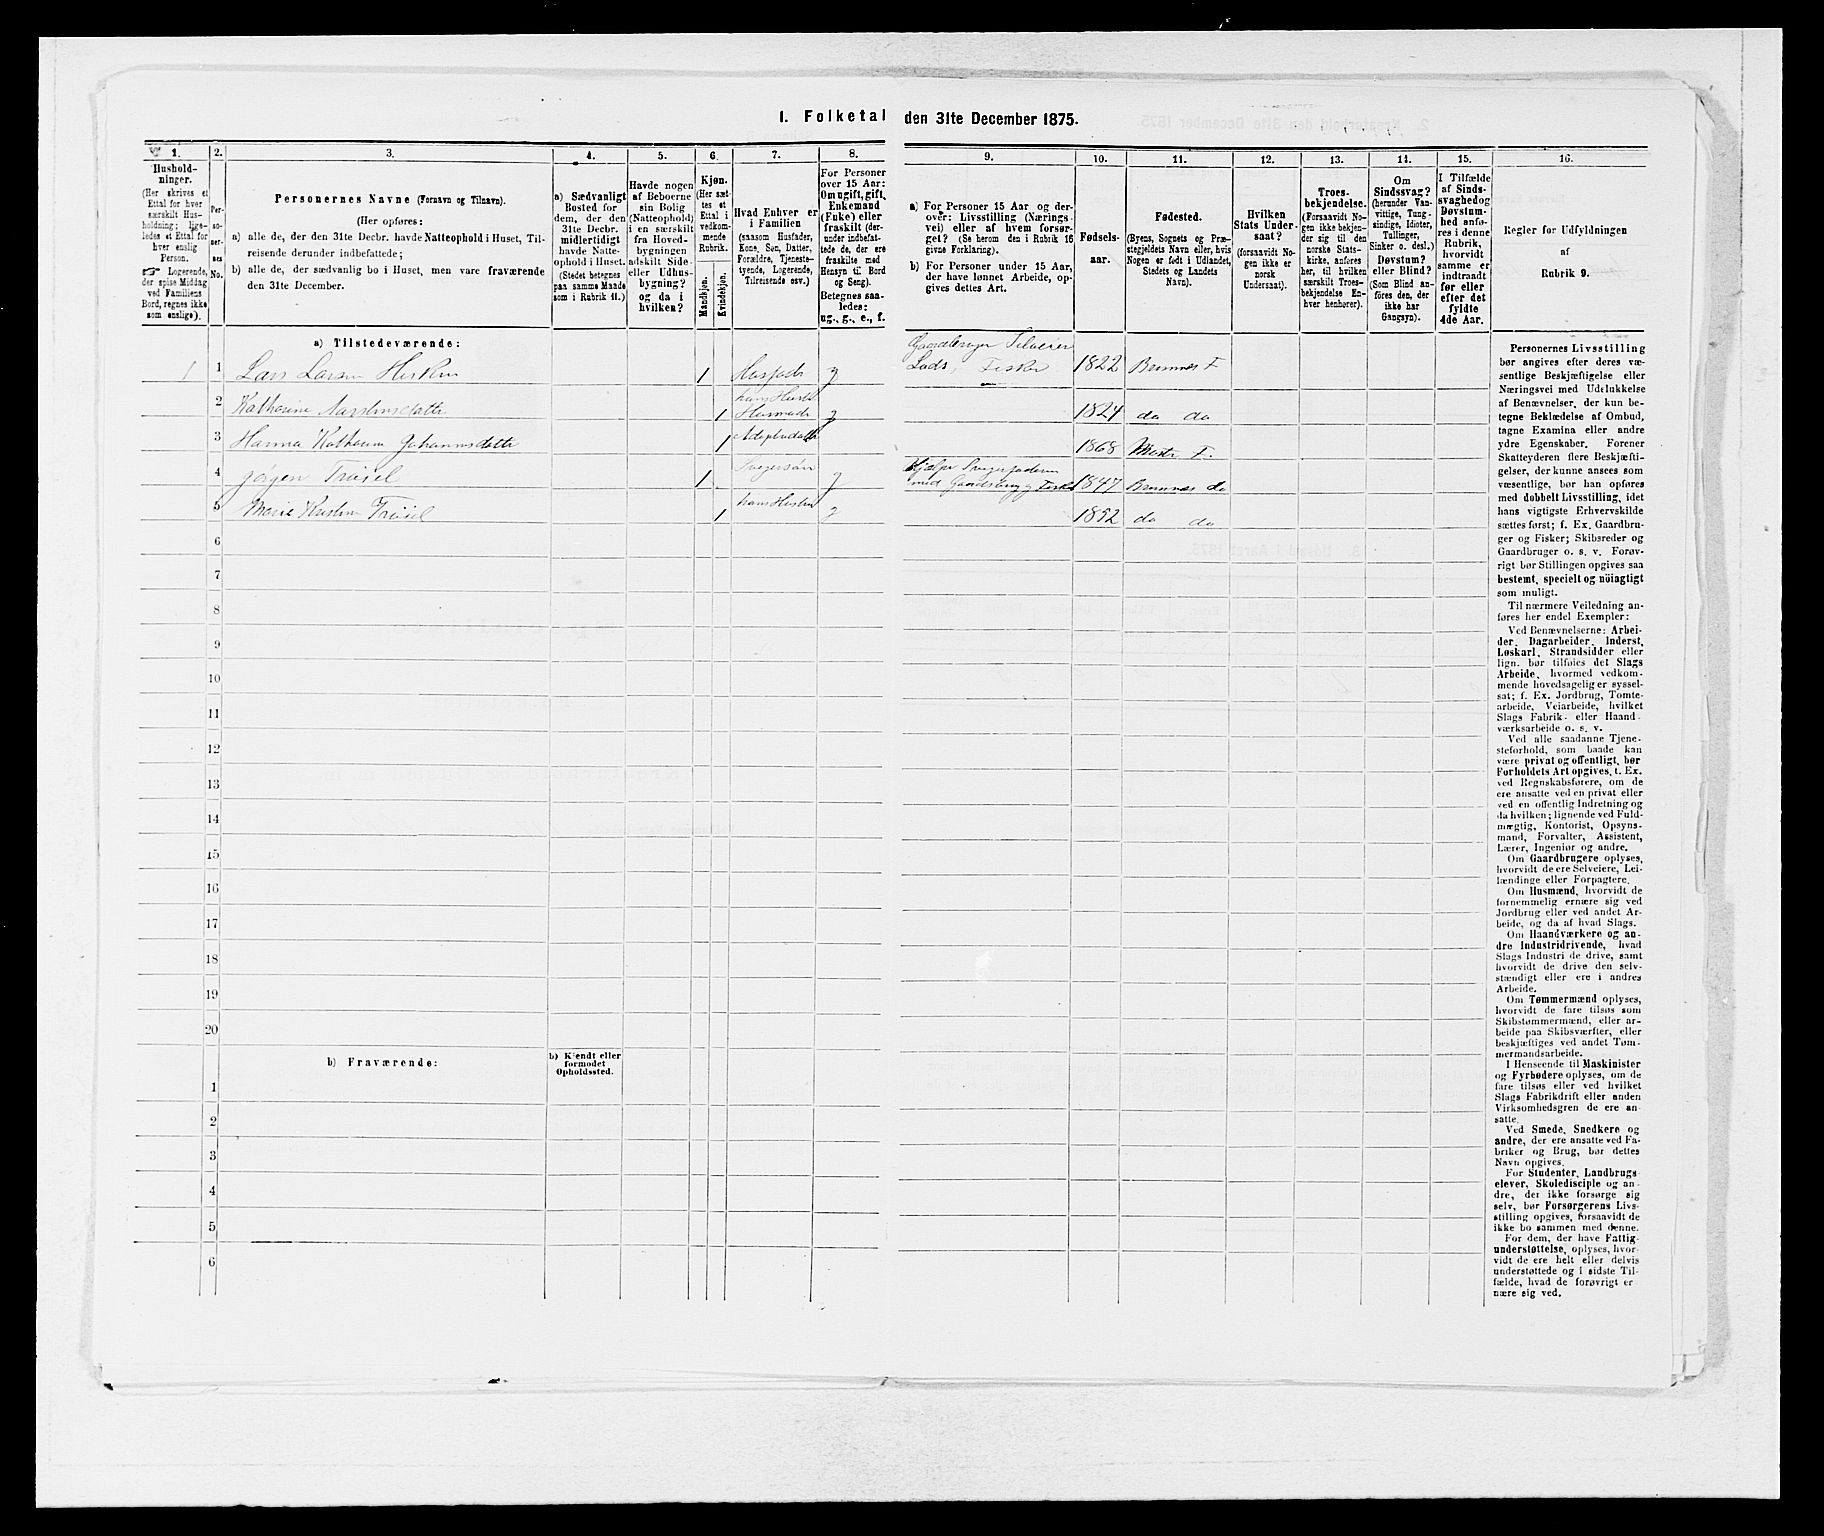 I. Folketal den 31te December 1875.
1. 2. 3. 4. 5. 6. 7. 8. 9. 10. 11. 12. 13. 14. 15. 16.
Hushold-
ninger.
(Her skrives et
Ettal for hver
særskilt Hus-
holdning; lige-
ledes et Ettal for
hver enslig
Person.
☞ Logerende,
der spise Middag
ved Familiens
Bord, regnes ikke
som enslige).
Per-
so-
ner-
nes
No.
Personernes Navne (Fornavn og Tilnavn).
(Her opføres:
a) alle de, der den 31te Decbr. havde Natteophold i Huset, Til-
reisende derunder indbefattede;
b) alle de, der sædvanlig bo i Huset, men vare fraværende
den 31te December.
a) Sædvanligt
Bosted for
dem, der den
31te Decbr.
midlertidigt
havde Natte-
ophold i Huset.
(Stedet betegnes
paa samme Maade
som i Rubrik 11.)
Havde nogen
af Beboerne
sin Bolig
(Natteophold)
i en særskilt
fra Hoved-
bygningen
adskilt Side-
eller Udhus-
bygning?
og da i
hvilken?
Kjøn.
(Her sæt-
tes et
Ettal i
vedkom-
mende
Rubrik.
Mandkjøn.
Kvindekjøn.
Hvad Enhver er
i Familien
(saasom Husfader,
Kone, Søn, Datter,
Forældre, Tjeneste-
tyende, Logerende,
Tilreisende osv.)
For Personer
over 15 Aar:
Om ugift, gift,
Enkemand
(Enke) eller
fraskilt (der-
under indbefat-
tede de, der ere
fraskilte med
Hensyn til Bord
og Seng).
Betegnes saa-
ledes:
ug., g., e., f.
a) For Personer 15 Aar og der-
over: Livsstilling (Nærings-
vei) eller af hvem forsør-
get? (Se herom den i Rubrik 16
givne Forklaring).
b) For Personer under 15 Aar,
der have lønnet Arbeide, op-
gives dettes Art.
Fødsels-
aar.
Fødested.
(Byens, Sognets og Præ-
stegjeldets Navn eller, hvis
Nogen er født i Udlandet,
Stedets og Landets
Navn).
Hvilken
Stats Under-
saat?
(forsaavidt No-
gen ikke er
norsk
Undersaat).
Troes-
bekjendelse.
(Forsaavidt No-
gen ikke bekjen-
der sig til den
norske Stats-
kirke, anføres
her, til hvilken
særskilt Troes-
bekjendelse En-
hver henhører).
Om
Sindssvag?
(herunder Van-
vittige, Tung-
sindige, Idioter,
Tullinger,
Sinker o. desl.)
Døvstum?
eller Blind?
(Som Blind an-
føres den, der
ikke har
Gangsyn).
I Tilfælde
af Sinds-
svaghed og
Døvstum-
hed anfø-
res i denne
Rubrik,
hvorvidt
samme er
indtraadt
før eller
efter det
fyldte
4de Aar.
Regler før Udfyldningen
af
Rubrik 9.
a) Tilstedeværende:
Gaardbruger Selveier
1 1 Lars Larsen 1 Husfader g Lods, Fisker 1822 Bremnes F
hans Hustr
2 Katharine 1 Husmoder g 1824 do do
3 Hanna Johannsdatter 1 1868 F.
Svigersøn Hjælper Svigerfaderen
4 Jørgen 1 g med Gaardsbrug og Fisker 1847 Bremnes do
5 Marie 1 hans Hustru g 1852 do do
6
7
8
9
10
11
12
13
14
15
16
17
18
19
20
b) Fraværende:
b) Kjendt eller
formodet
Opholdssted.
1
2
3
4
5
6
Personernes Livsstilling
bør angives efter deres væ-
sentlige Beskjæftigelse eller
Næringsvei med Udelukkelse
af Benævnelser, der kun be-
tegne Beklædelse af Ombud,
tagne Examina eller andre
ydre Egenskaber. Forener
Skatteyderen flere Beskjæfti-
gelser, der kunne ansees som
væsentlige, bør han opføres
med dobbelt Livsstilling, idet
hans vigtigste Erhvervskilde
sættes først; f. Ex. Gaardbru-
ger og Fisker; Skibsreder og
Gaardbruger o. s. v. Forøv-
rigt bør Stillingen opgives saa
bestemt, specielt og nöiagtigt
som muligt.
Til nærmere Veiledning an-
føres her endel Exempler:
Ved Benævnelserne: Arbei-
der, Dagarbeider, Inderst,
Løskarl, Strandsidder eller
lign. bør tilføies det Slags
Arbeide, hvormed vedkom-
mende hovedsagelig er syssel-
sat; f. Ex. Jordbrug, Tomte-
arbeide, Veiarbeide, hvilket
Slags Fabrik- eller Haand-
værksarbeide o. s. v.
Ved alle saadanne Tjene-
steforhold, som baade kan
være privat og offentligt, bør
Forholdets Art opgives, t. Ex.
ved Regnskabsførere, om de
ere ansatte ved en privat eller
ved en offentlig Indretning og
da hvilken; lignende ved Fuld-
mægtig, Kontorist, Opsyns-
mand, Forvalter, Assistent,
Lærer, Ingeniør og andre.
Om Gaardbrugere oplyses,
hvorvidt de ere Selveiere, Lei-
lændinge eller Forpagtere.
Om Husmænd, hvorvidt de
fornemmelig ernære sig ved
Jordbrug eller ved andet Ar-
beide, og da af hvad Slags.
Om Haandværkere og an-
dre Industridrivende, hvad
Slags Industri de drive, samt
hvorvidt de drive den selv-
stændigt eller ere i andres
Arbeide.
Om Tømmermænd oplyses,
hvorvidt de fare tilsøs som
Skibstømmermænd, eller ar-
beide paa Skibsværfter, eller
beskjæftiges ved andet Tøm-
mermandsarbeide.
I Henseende til Maskinister
og Fyrbødere oplyses, om de
fare tilsøs eller ved hvilket
Slags Fabrikdrift eller anden
Virksomhedsgren de ere an-
satte.
Ved Smede, Snedkere og
andre, der ere ansatte ved Fa-
briker og Brug, bør dettes
Navn opgives.
For Studenter, Landbrugs-
elever, Skoledisciple og an-
dre, der ikke forsørge sig
selv, bør Forsørgerens Livs-
stilling opgives, forsaavidt de
ikke bo sammen med denne.
For dem, der have Fattig-
understøttelse, oplyses, hvor-
vidt de ere helt eller delvis
understøttede og i sidste Til-
fælde, hvad de forøvrigt er-
nære sig ved.